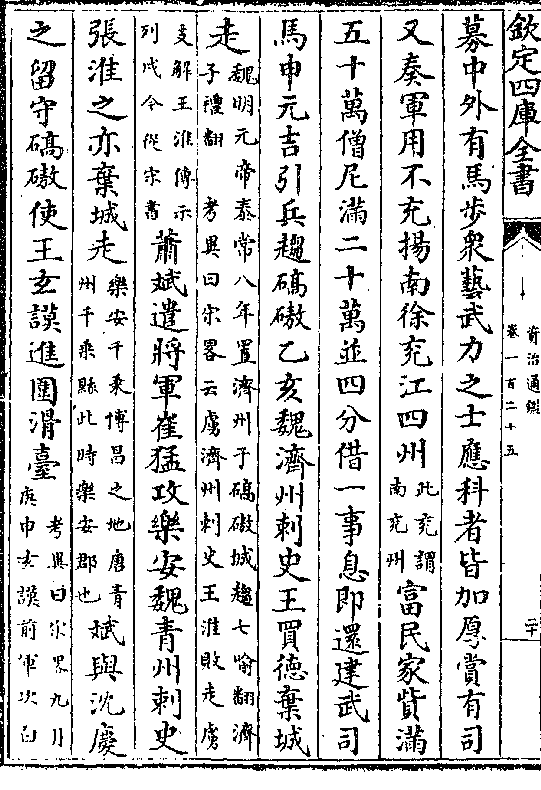 欽定四庫全書
資治通鑑
卷一百二十五
二十
募中外有馬步衆藝武力之士應科者皆加厚賞有司
又奏軍用不充揚南徐兖江四州
此兖謂
南兖州
富民家貲滿
五十萬僧尼滿二十萬並四分借一事息即還建武司
馬申元吉引兵趨碻磝乙亥魏濟州刺史王買德棄城
走
魏明元帝泰常八年置濟州于碻磝城趨七喻翻濟
子禮翻　考異曰宋畧云虜濟州刺史王淮敗走虜
支解王淮傳示
列戍今從宋書
蕭斌遣將軍崔猛攻樂安魏青州刺史
張淮之亦棄城走
樂安千乘博昌之地唐青
州千乘縣此時樂安郡也
斌與沈慶
之留守碻磝使王玄謨進圍滑臺
考異曰宋畧九月
庚申玄謨前軍次白